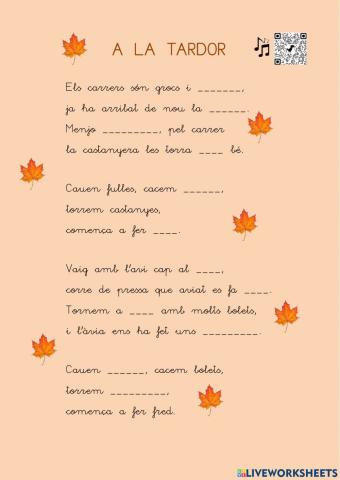 A LA TARDOR
Els carrers són grocs i _______,
ja ha arribat de nou la ______.
Menjo _________, pel carrer
la castanyera les torra ____ bé.
Cauen fulles, cacem ______,
torrem castanyes,
comença a fer ____.
Vaig amb l'avi cap al ____,
corre de pressa que aviat es fa ____.
Tornem a ____ amb molts bolets,
i l'àvia ens ha fet uns _________.
Cauen ______, cacem bolets,
torrem _________,
comença a fer fred.
LIVEWORKSHEETS